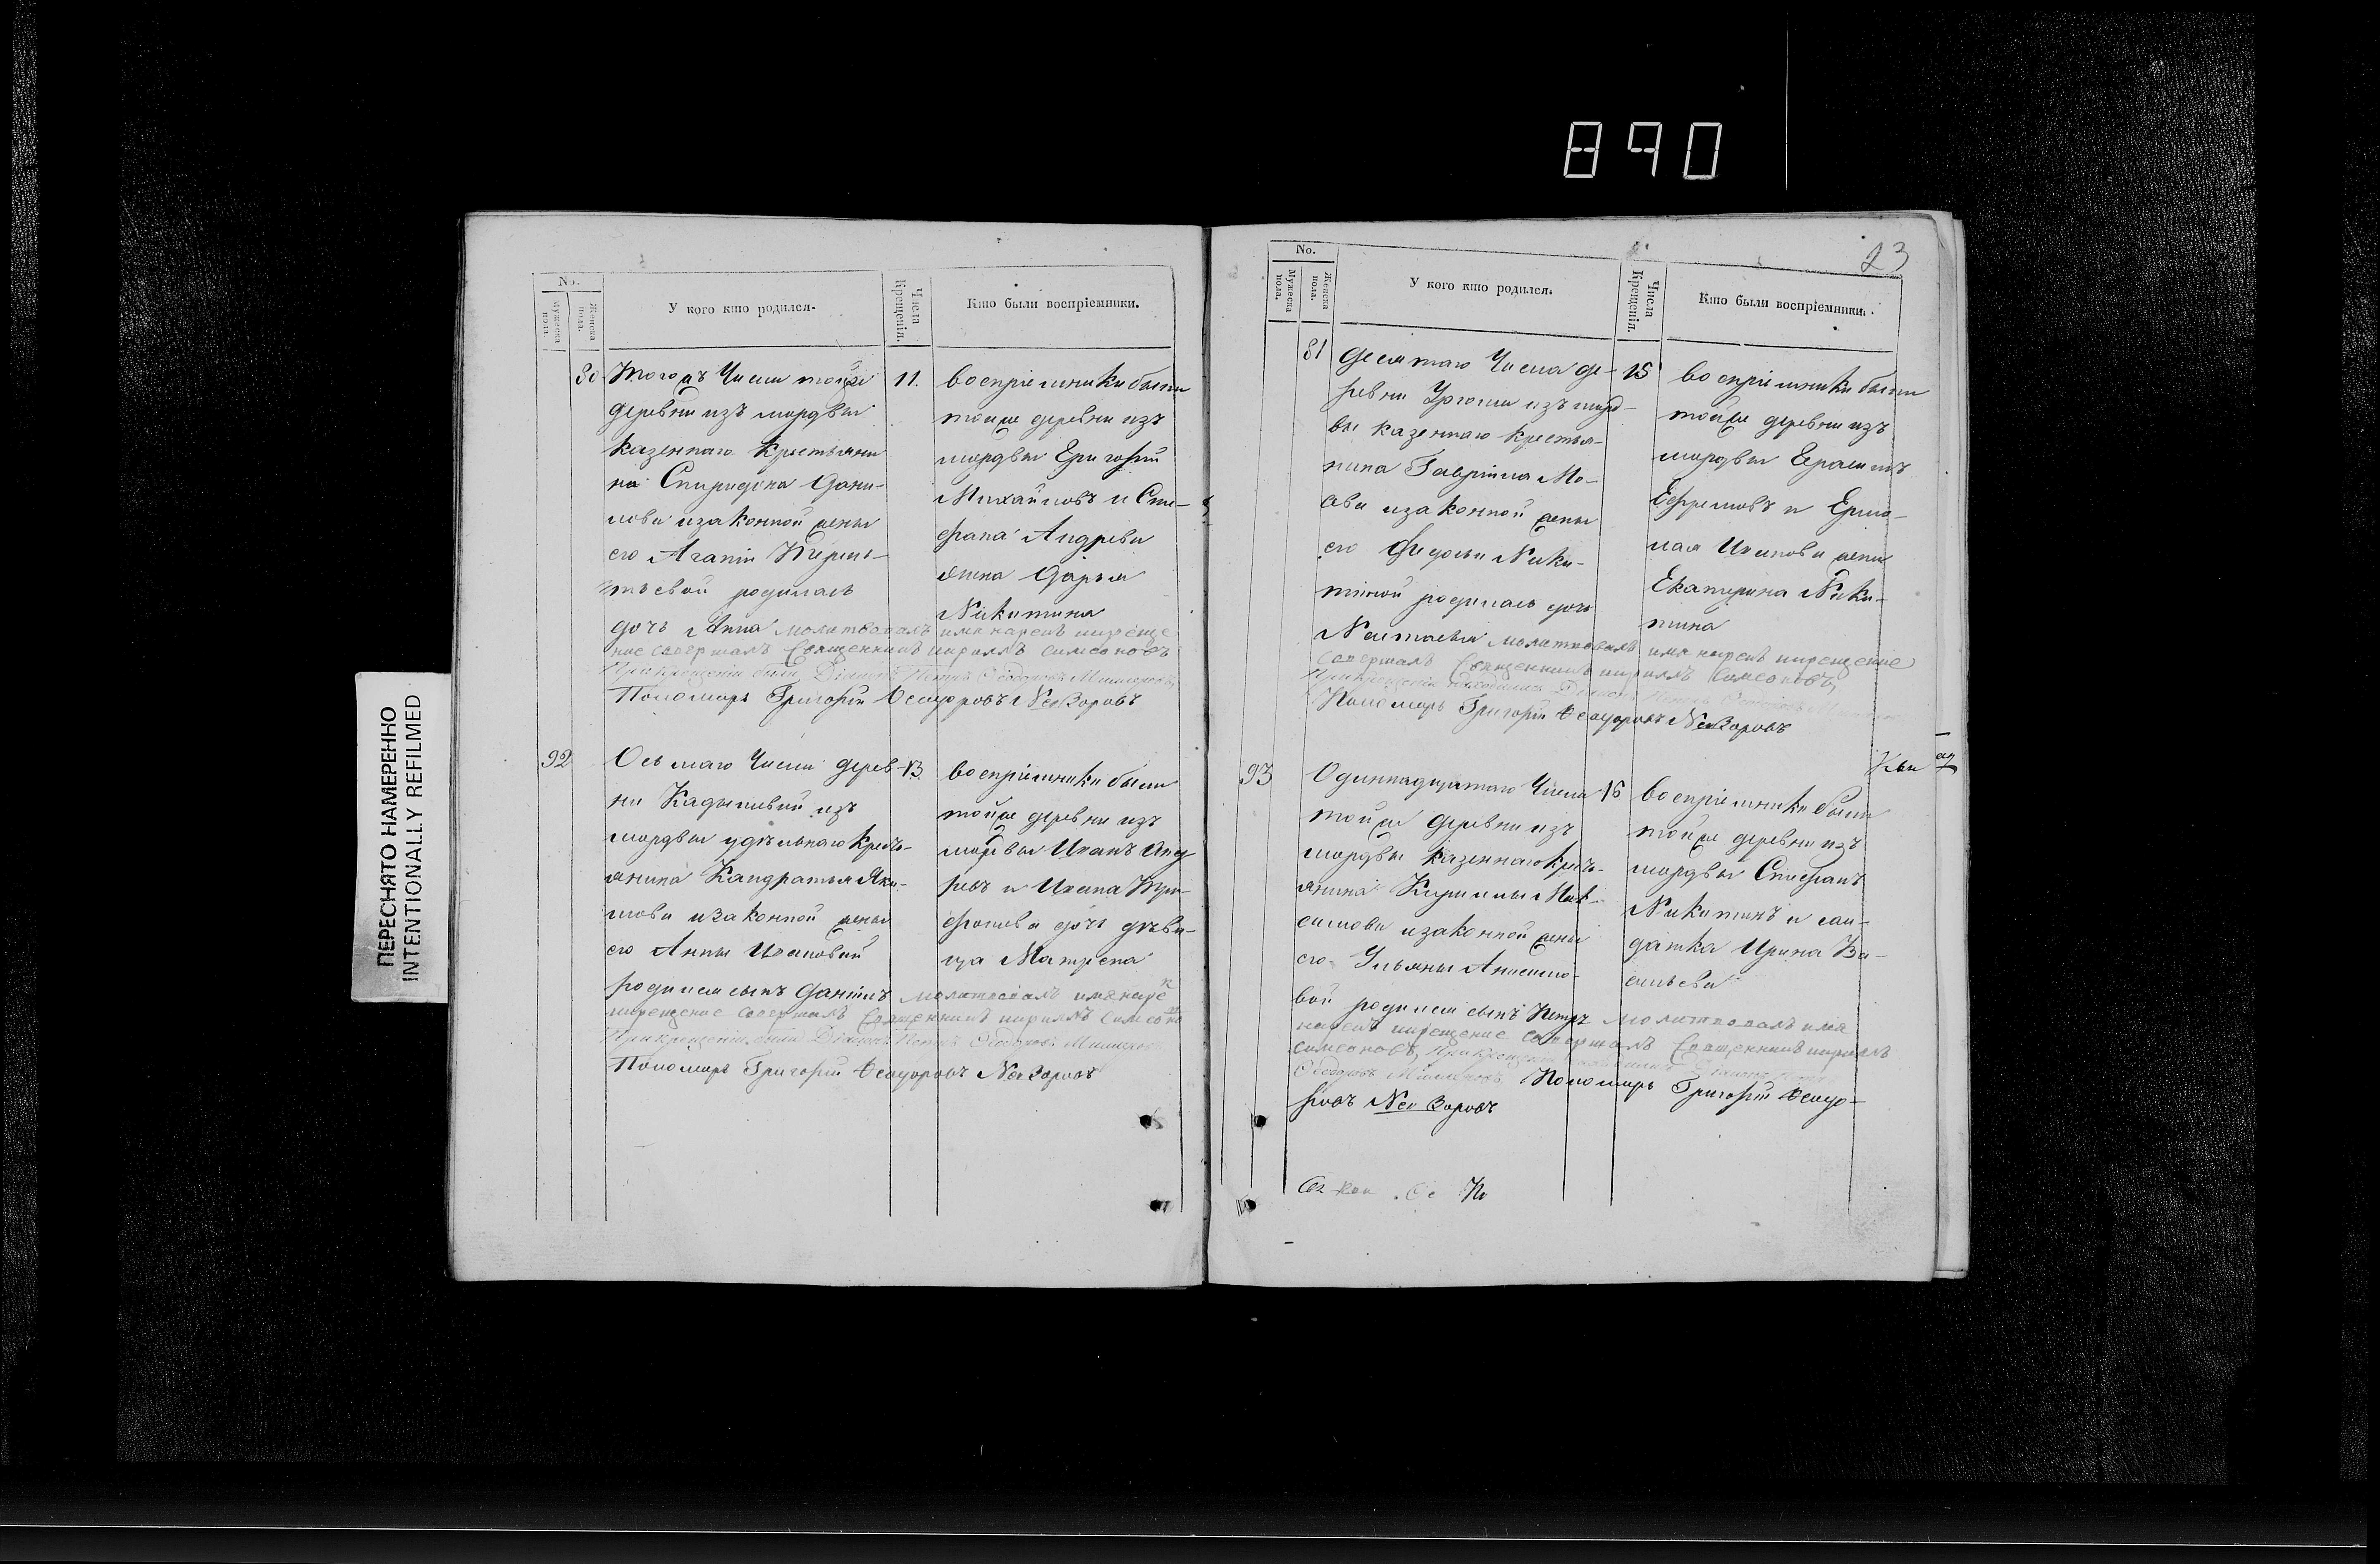 890
ПЕРЕСНЯТО НАМЕРЕННО
INTENTIONALLY REFILMED
No.
Мужеска пола.
Женска пола.
У кого кто родился.
Числа Крещенія.
Кто были воспріемники.
80
Тогожъ Числа тойже
деревни изъ мордвы
казеннаго крестьяни
на Спиридона Дани-
лова изаконной жены
его Агапіи Терень-
тьевой родилась
дочь Анна молитвовалъ имя нарекъ икреще
ніе совершалъ Священникъ кириллъ Симеоновъ
При крещеніи были Діаконъ Петръ Ѳеодоровъ
Пономарь Григорій Ѳеодоровъ Невзоровъ
11.
воспріемники были
тойже деревни изъ
мордвы Григорий
Михайловъ и Сте-
фана Андреева
жена Дарья
Никитина
92
Осьмаго Числа дерев-
ни Кадышевой изъ
мордвы удѣльнаго кресть-
янина Кандратья Яки-
мова изаконной жены
его Анны Ивановой
родился сынъ Даніилъ молитвовалъ имя нарекъ
икрещеніе совершалъ Священникъ кириллъ Симеоновъ
При крещеніи были Діаконъ Петръ Ѳеодоровъ
Пономарь Григорій Ѳеодоровъ Невзоровъ
13
воспріемники были
тойже деревни изъ
мордвы Иванъ Анд
реевъ и Ивана Три-
фонова дочь дѣви-
ца Матрена
23
No.
Мужеска пола.
Женска пола.
У кого кто родился.
Числа Крещенія.
Кто были воспріемники.
81
Десятаго Числа де-
ревни изъ морд-
вы казеннаго крестья-
нина Гавріила Мо-
его Федосьи Ники-
тиной родилась дочь
Настасья молитвовалъ имя нарекъ икрещеніе
совершалъ Священникъ кириллъ Симеоновъ,
Пономарь Григорій Ѳеодоровъ Невзоровъ
15
воспріемники были
тойже деревни изъ
мордвы
Ефремовъ и Ермо-
лая Иванова жена
Екатерина Ники-
тина
93
Одиннадцатаго Числа
тойже деревни изъ
мордвы казеннаго кресть-
янина Кирилы Мак-
симова изаконной жены
его Ульяны Анисимо-
вой родился сынъ Петръ молитвовалъ имя
нарекъ икрещеніе совершалъ Священникъ кириллъ
Симеоновъ, При крещеніи
Ѳеодоровъ Пономарь Григорій Ѳеодо-
ровъ Невзоровъ
16
воспріемники были
тойже деревни изъ
мордвы Стефанъ
Никитинъ и сол-
датка Ирина Ва-
сильева